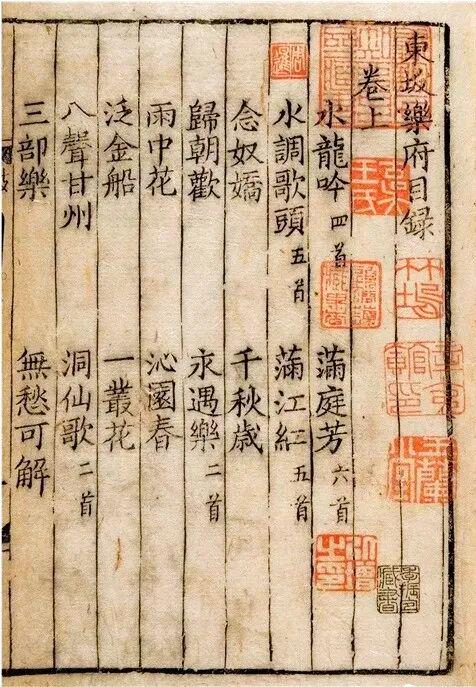 東坡樂府目録
卷上
水龍吟 四首 滿庭芳 六首
水調歌頭 五首 滿江紅 五首
念奴嬌 千秋歲
歸朝歡 永遇樂 二首
雨中花 沁園春
泛金船 一叢花
八聲甘州 洞仙歌 二首
三部樂 無愁可解